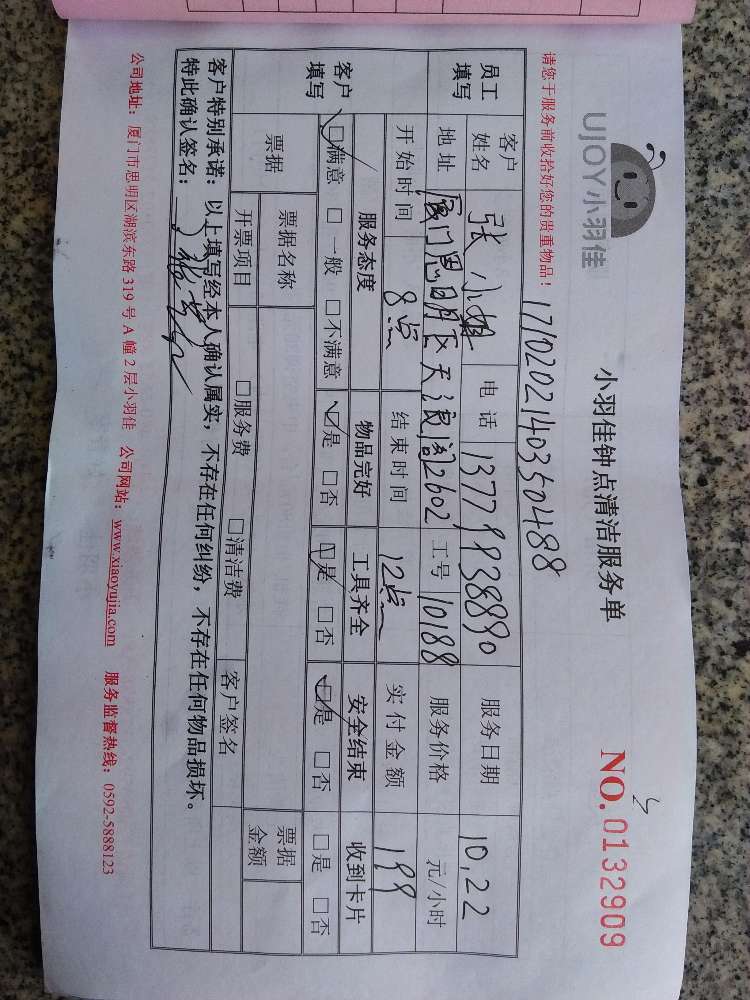 UJOY小羽佳
小羽佳钟点清洁服务单
NO. 0132909
请您于服务前收拾好您的贵重物品！
171020214035 0488
员工填写 客户姓名 张小姐 电话 13779938890 服务日期 10,22
地址 厦门思明区天湖阁2602 工号 10188 服务价格 元/小时
开始时间 8点 结束时间 12点 实付金额 199
客户填写 服务态度 物品完好 工具齐全 安全结束 收到卡片
☑满意 □一般 □不满意 ☑是 □否 ☑是 □否 ☑是 □否 □是 □否
票据 票据名称 客户签名 票据金额
开票项目 □服务费 □清洁费
客户特别承诺：以上填写经本人确认属实，不存在任何纠纷，不存在任何物品损坏。
特此确认签名：
公司地址：厦门市思明区湖滨东路 319 号 A 幢 2 层小羽佳 公司网站：www.xiaoyujia.com 服务监督热线：0592-5888123